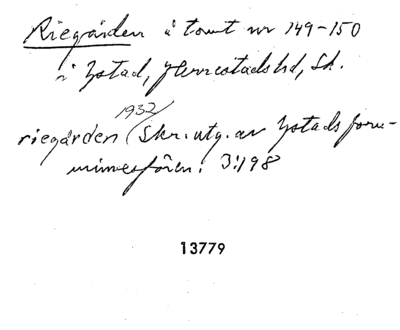 Riegården å tomt nr 149-150
i Ystad, Herrestads hd, Sk.
1932
riegården (Skr. utg. av Ystads forn-
minnesfören. 3:198
13779